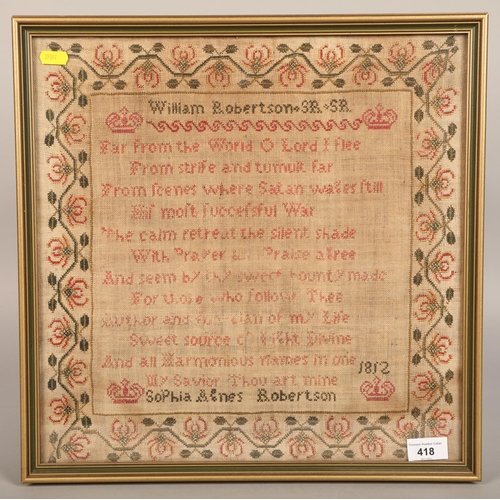 William Robertson SR SR
Far from the World O Lord I flee
From strife and tumult far
From scenes where Satan wages still
His moſt ſucceſsful War
The calm retreat the silent shade
With Prayer and Praise agree
And seem by thy sweet bounty made
For those who follow Thee
Author and Guardian of my Life
Sweet source of Light Divine
And all Harmonious names in one
My Savior Thou art mine
1812
Sophia Agnes Robertson
418